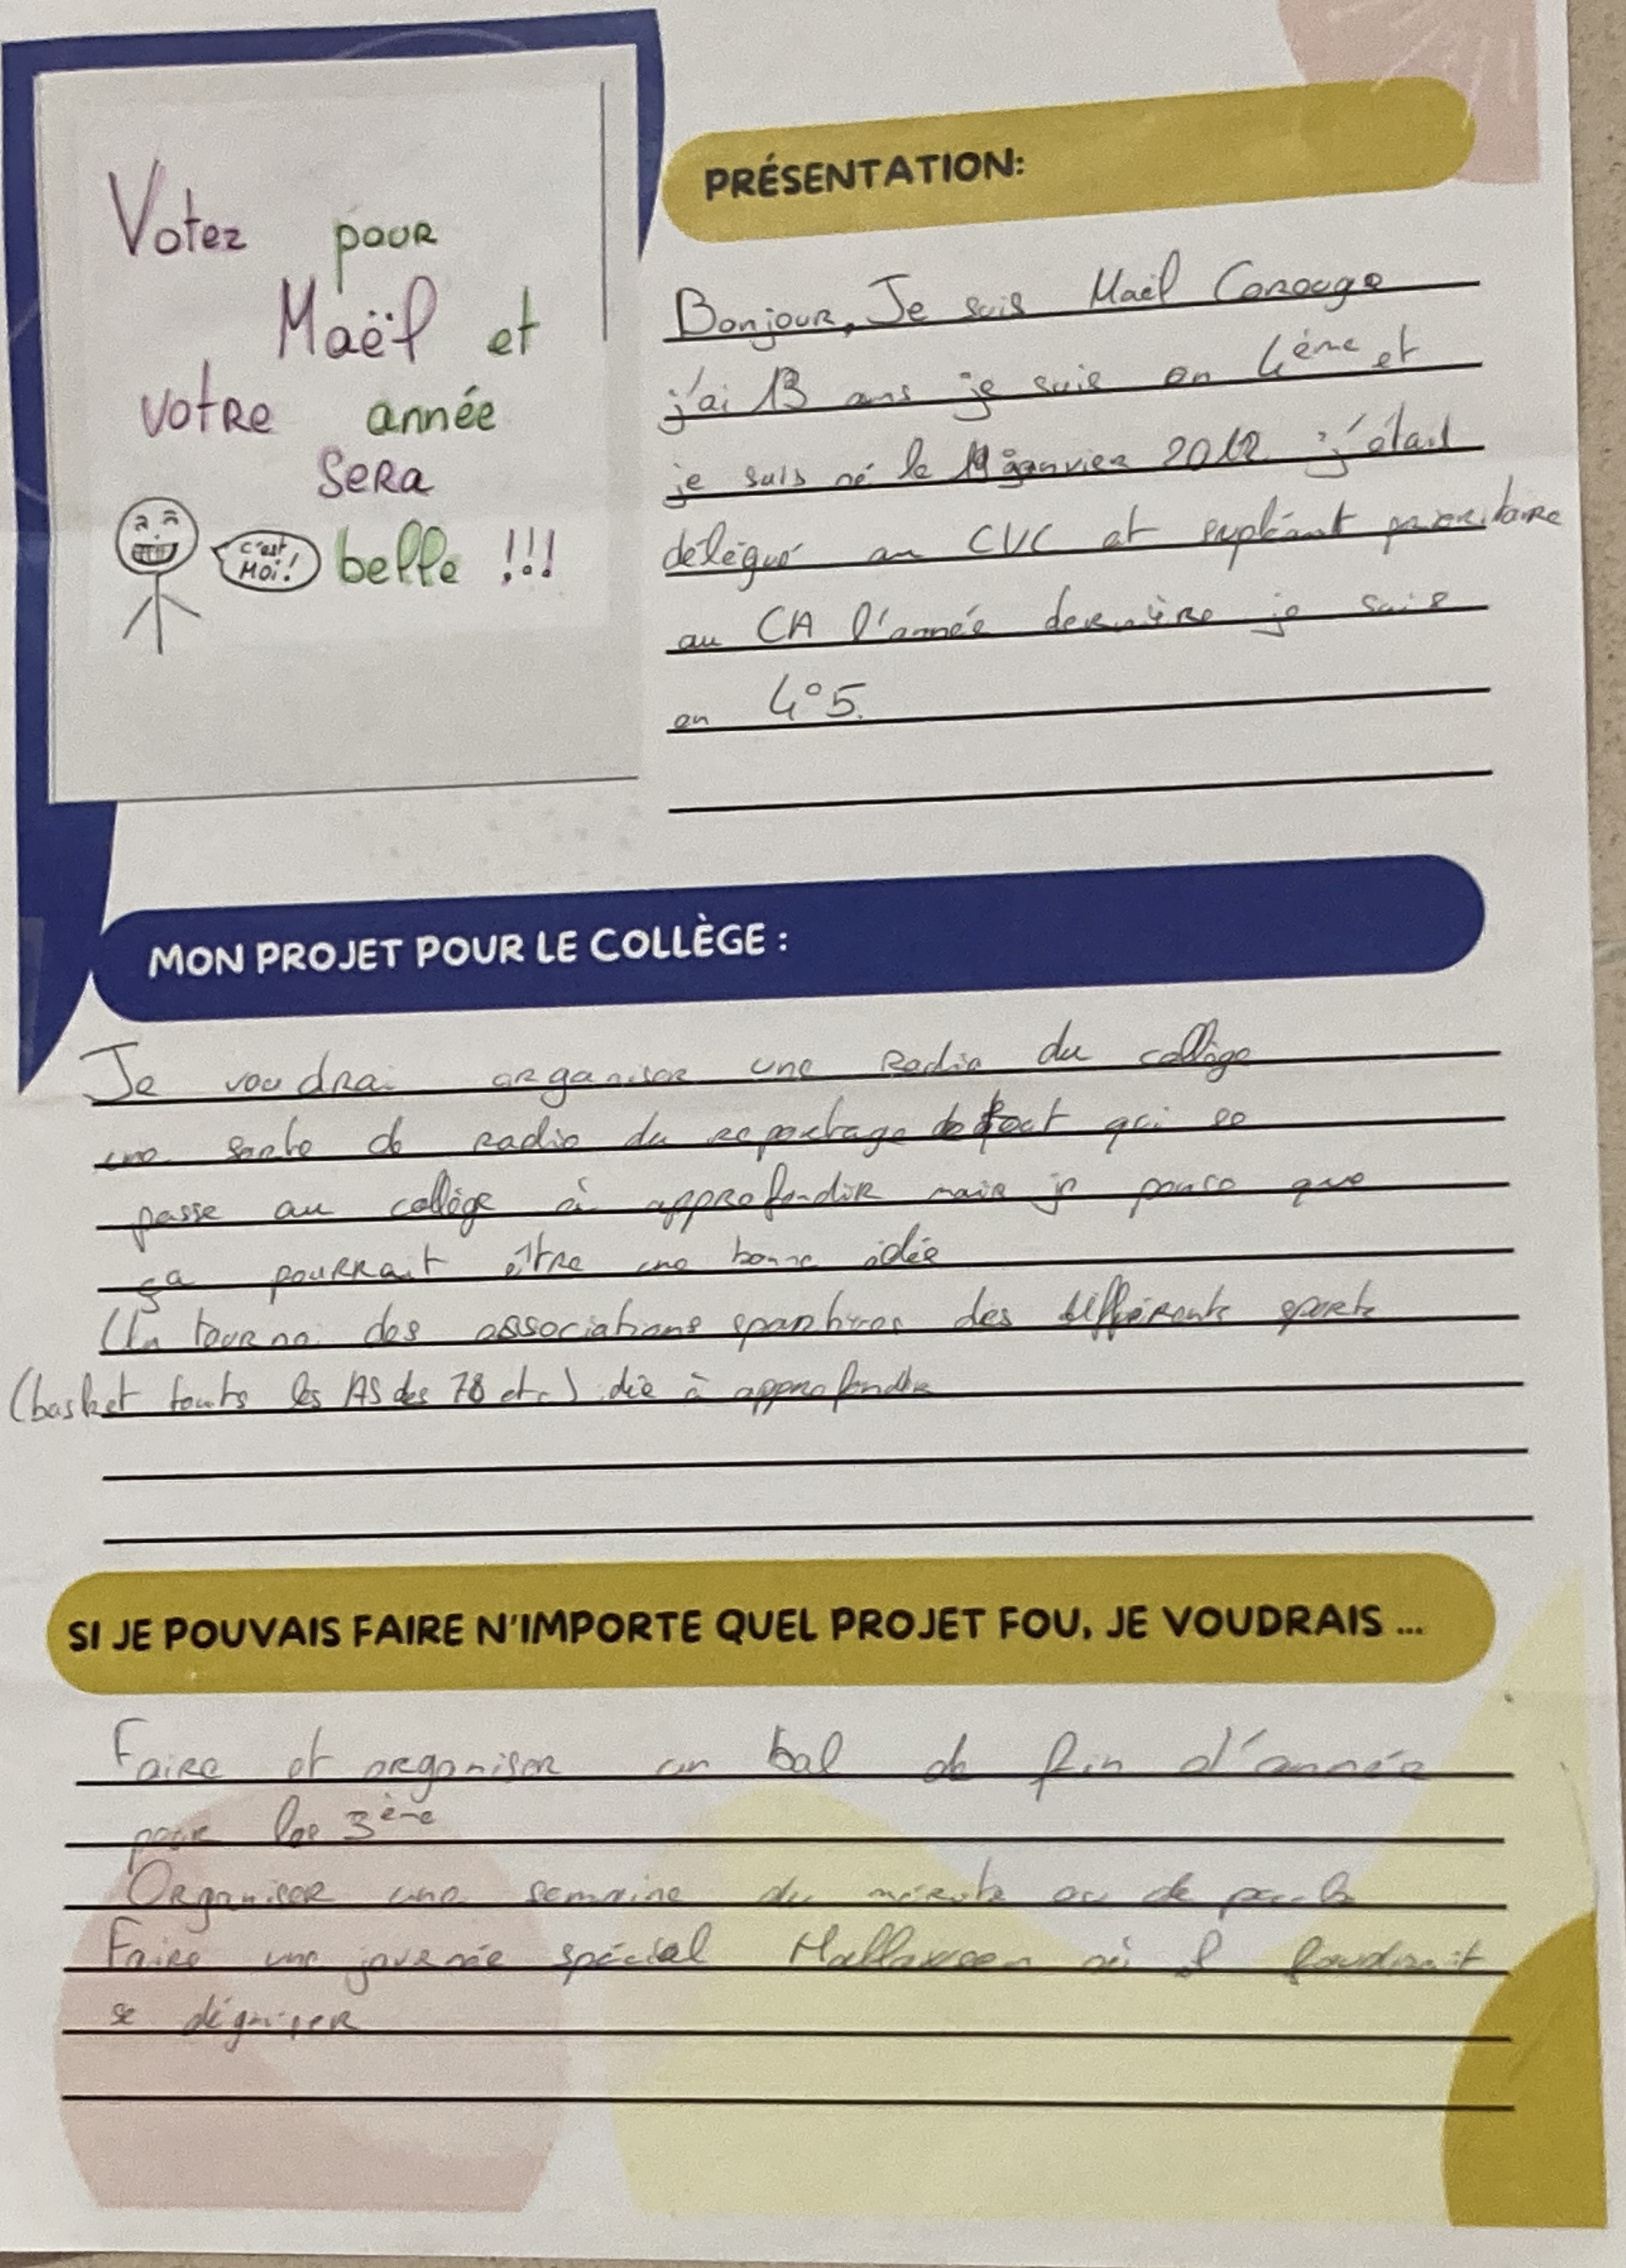 Votez pour
Maël et
votre année
sera
belle !!!
c'est
Moi!
PRÉSENTATION:
Bonjour, Je suis Maël Corouge
j'ai 13 ans je suis en 4ème et
je suis né le janvier 2012 j'étais
délégué au CVC et supléant prioritaire
au CA l'année dernière je suis
en 4°5.
MON PROJET POUR LE COLLÈGE :
Je voudrai organiser une radio du collège
une sorte de radio du reportage de tout qui se
passe au collège à approfondir mais je pense que
ça pourrait être une bonne idée
Un tournoi des associations sportives des différents sports
(basket touts les AS des 78 etc) idée à approfondir
SI JE POUVAIS FAIRE N'IMPORTE QUEL PROJET FOU, JE VOUDRAIS ...
Faire et organiser un bal de fin d'année
pour les 3ème
Organiser une semaine du ou de
Faire une journée spécial Halloween où il faudrait
se déguiser